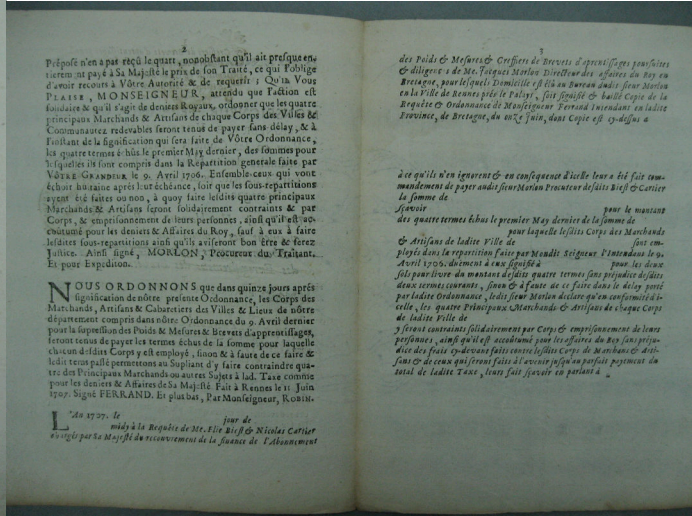 2
Préposé n'en a pas reçû le quart, nonobstant qu'il ait presque en-
tierement payé à Sa Majesté le prix de son Traité, ce qui l'oblige
d'avoir recours à Vôtre Autorité & de requerir ; Qu'IL VOUS
PLAISE, MONSEIGNEUR, attendu que l'action est
solidaire & qu'il s'agit de deniers Royaux, ordonner que les quatre
principaux Marchands & Artisans de chaque Corps des Villes &
Communautez redevables seront tenus de payer sans délay, & à
l'instant de la signification qui sera faite de Vôtre Ordonnance,
les quatre termes échûs le premier May dernier, des sommes pour
lesquelles ils sont compris dans la Repartition generale faite par
VÔTRE GRANDEUR le 9. Avril 1706. Ensemble ceux qui vont
échoir huitaine après leur échéance, soit que les sous-repartitions
ayent été faites ou non, à quoy faire lesdits quatre principaux
Marchands & Artisans seront solidairement contraints & par
Corps, & emprisonnement de leurs personnes, ainsi qu'il est ac-
coûtumé pour les deniers & Affaires du Roy, sauf à eux à faire
lesdites sous-repartitions ainsi qu'ils aviseront bon être & ferez
Justice. Ainsi signé, MORLON, Procureur du Traitant.
Et pour Expedition.
NOUS ORDONNONS que dans quinze jours après
signification de nôtre presente Ordonnance, les Corps des
Marchands, Artisans & Cabaretiers des Villes & Lieux de nôtre
département compris dans nôtre Ordonnance du 9. Avril dernier
pour la supression des Poids & Mesures & Brevets d'apprentissages,
seront tenus de payer les termes échus de la somme pour laquelle
chacun desdits Corps y est employé, sinon & à faute de ce faire &
ledit tems passé permettons au Supliant d'y faire contraindre qua-
tre des Principaux Marchands ou autres Sujets à lad. Taxe comme
pour les deniers & Affaires de Sa Majesté Fait à Rennes le 11 Juin
1707. Signé FERRAND. Et plus bas, Par Monseigneur, ROBIN.
L'An 1707. le jour de
midy à la Requête de Me. Elie Biest & Nicolas Cartier
chargés par Sa Majesté du recouvrement de la finance de l'Abonnement
3
des Poids & Mesures & Greffiers de Brevets d'aprentissages poursuites
& diligences de Me. Jacques Morlon Directeur des affaires du Roy en
Bretagne, pour lesquels Domicille est élû au Bureau dudit sieur Morlon
en la Ville de Rennes prés le Palais, soit signifié & baillé Copie de la
Requête & Ordonnance de Monseigneur Ferrand Intendant en ladite
Province, de Bretagne, du onze Juin, dont Copie est cy-dessus a
à ce qu'ils n'en ignorent & en consequence d'icelle leur a été fait com-
mandement de payer audit sieur Morlon Procureur desdits Biest & Cartier
la somme de
sçavoir pour le montant
des quatre termes échus le premier May dernier de la somme de
pour laquelle lesdits Corps des Marchands
& Artisans de ladite Ville de sont em-
ployés dans la repartition faite par Mondit Seigneur l'Intendant le 9.
Avril 1706. duëment à eux signifié à pour les deux
sols pour livre du montant desdits quatre termes sans préjudice desdits
deux termes courants, sinon & à faute de ce faire dans le delay porté
par ladite Ordonnance, ledit sieur Morlon declare qu'en conformité d'i-
celle, les quatre Principaux Marchands & Artisans de chaque Corps
de ladite Ville de
y seront contraints solidairement par Corps & emprisonnement de leurs
personnes, ainsi qu'il est accoûtumé pour les affaires du Roy sans préju-
dice des frais cy-devant faits contre lesdits Corps de Marchans & Arti-
sans & de ceux qui seront faits à l'avenir jusqu'au parfait payement du
total de ladite Taxe, leurs fait sçavoir en parlant à